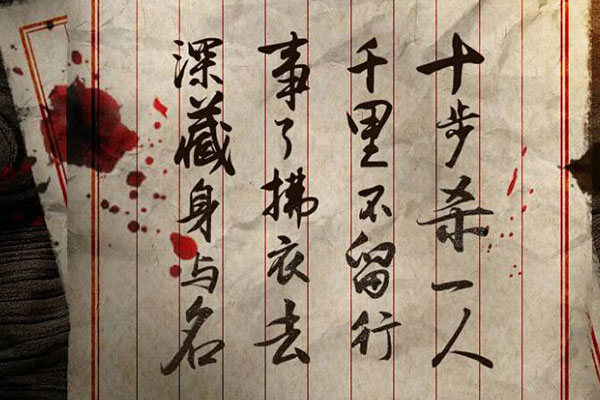 十步杀一人
千里不留行
事了拂衣去
深藏身与名